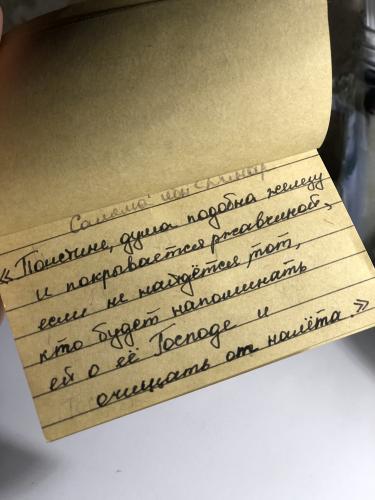 Салама ибн Динар
«Поистине, душа подобна железу
и покрывается ржавчиной,
если не найдётся тот,
кто будет напоминать
ей о её Господе и
очищать от налёта.»